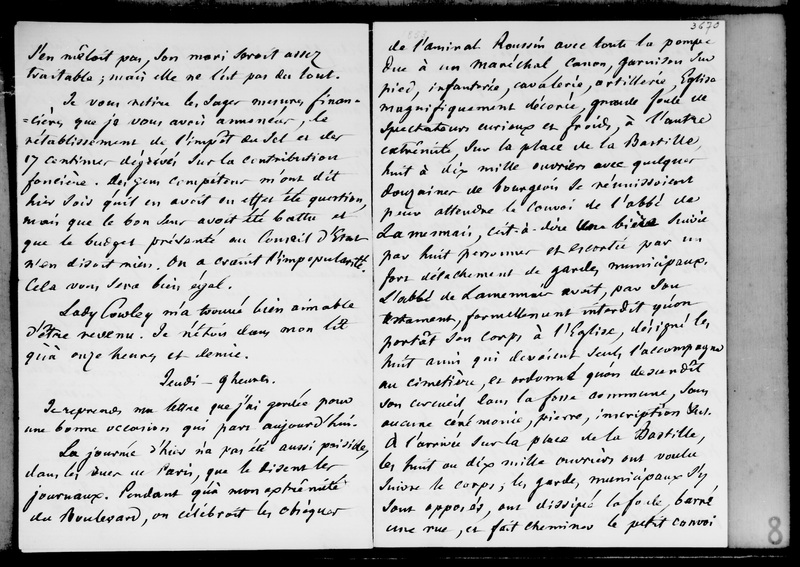 s'en mêloit pas, son mari seroit assez
traitable ; mais elle ne l'est pas du tout.
Je vous retire les sages mesures finan-
-cières que je vous avois annoncées, le
rétablissement de l'impôt du sel et des
17 centimes dégrévés sur la contribution
foncière. Des gens compétens m'ont dit
hier soir qu'il en avoit en effet été question,
mais que le bon sens avoit été battu et
que le budget présenté au Conseil d'Etat
n'en disoit rien. On a craint l'impopularité.
Cela vous sera bien égal.
Lady Cowley m'a trouvé bien aimable
d'être revenu. Je n'étois dans mon lit
qu'à onze heures et demie.
Jeudi - 9 heures.
Je reprends ma lettre que j'ai gardée pour
une bonne occasion qui part aujourd'hui.
La journée d'hier n'a pas été aussi paisible,
dans les rues de Paris, que le disent les
journaux. Pendant qu'à mon extrémité
du Boulevard, on célébroit les obsèques
3670
de l'amiral Roussin avec toute la pompe
due à un maréchal, canon, garnison sur
pied, infanterie, cavalerie, artillerie, Eglise
magnifiquement décorée, grande foule de
spectateurs curieux et froids, à l'autre
extrémité, sur la place de la Bastille,
huit à dix mille ouvriers avec quelques
douzaines de bourgeois se réunissoient
pour attendre le convoi de l'abbé de
Lamennais, c'est-à-dire une bière suivie
par huit personnes et escortée par un
fort détachement de gardes municipaux.
L'abbé de Lamennais avoit, par son
testament, formellement interdit qu'on
portât son corps à l'Eglise, désigné les
huit amis qui devoient seuls l'accompagner
au cimetière, et ordonné qu'on descendît
son cercueil dans la fosse commune, sans
aucune cérémonie, pierre, inscription &a.
à l'arrivée sur la place de la Bastille,
les huit ou dix mille ouvriers ont voulu
suivre le corps ; les gardes municipaux s'y
sont opposés, ont dissipé la foule, barré
une rue, et fait cheminer le petit convoi
8